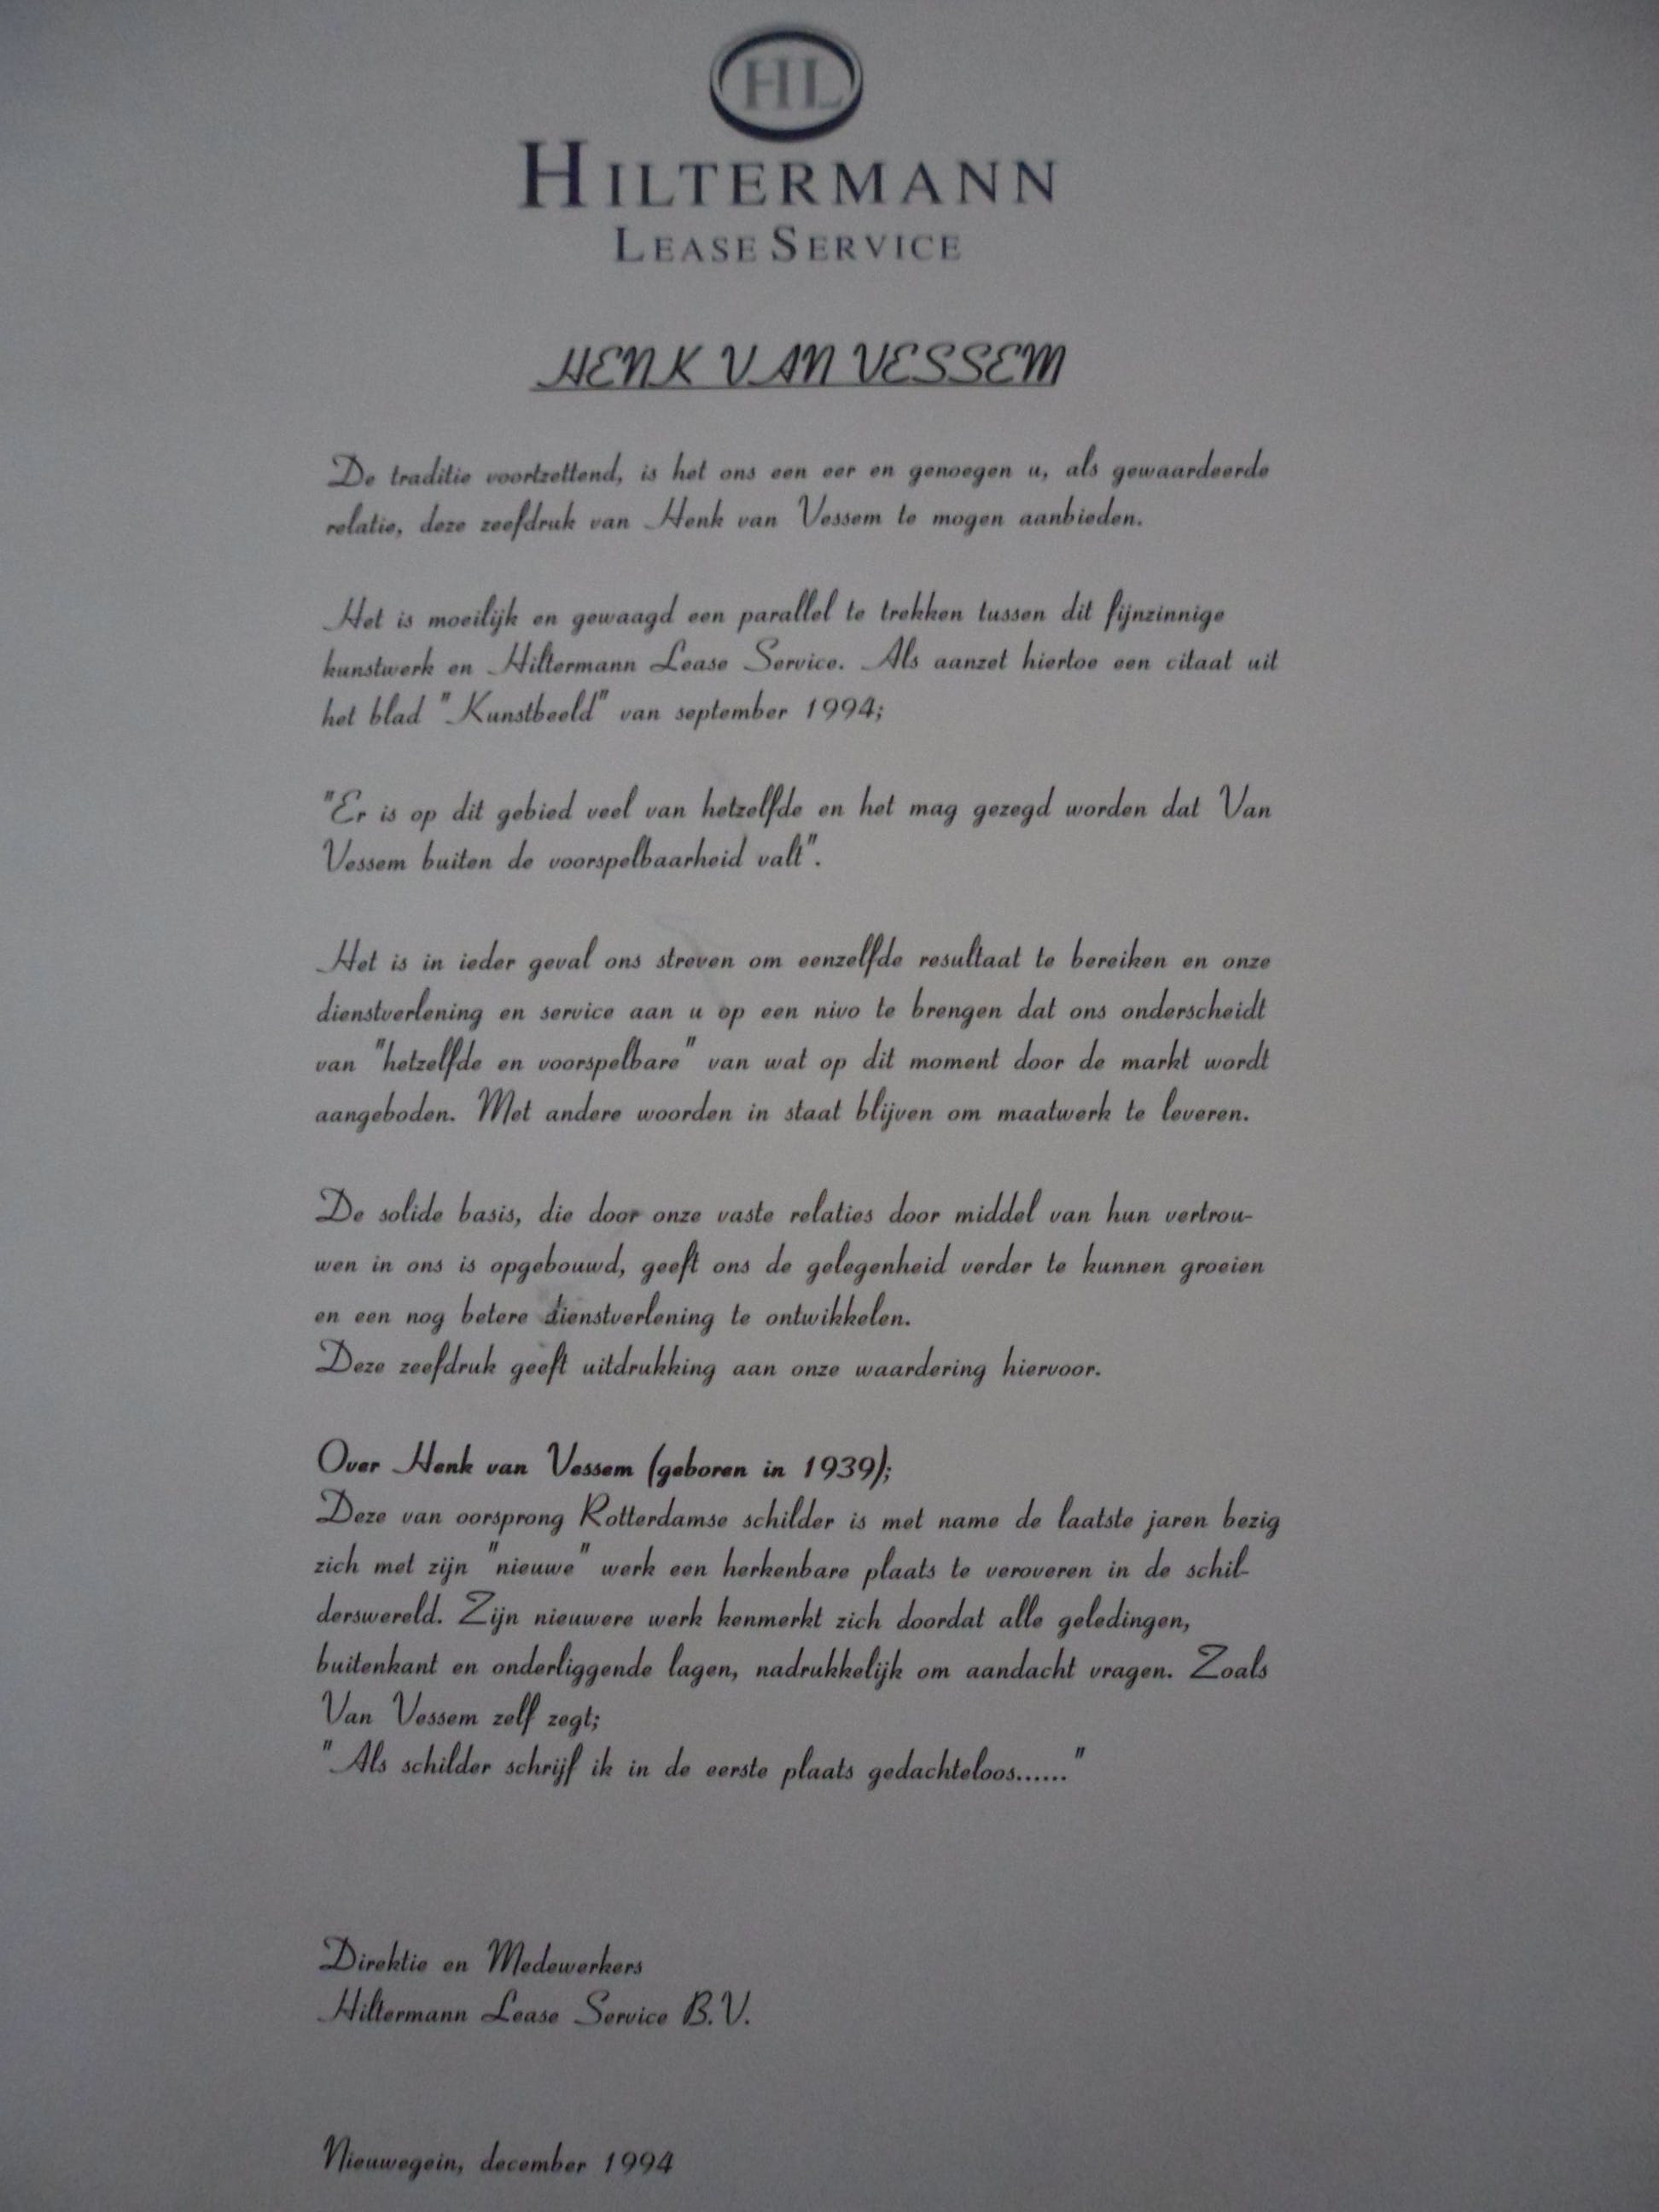 HL
HILTERMANN
LEASE SERVICE
HENK VAN VESSEM
De traditie voortzettend, is het ons een eer en genoegen u, als gewaardeerde
relatie, deze zeefdruk van Henk van Vessem te mogen aanbieden.
Het is moeilijk en gewaagd een parallel te trekken tussen dit fijnzinnige
kunstwerk en Hiltermann Lease Service. Als aanzet hiertoe een citaat uit
het blad "Kunstbeeld" van september 1994;
"Er is op dit gebied veel van hetzelfde en het mag gezegd worden dat Van
Vessem buiten de voorspelbaarheid valt".
Het is in ieder geval ons streven om eenzelfde resultaat te bereiken en onze
dienstverlening en service aan u op een nivo te brengen dat ons onderscheidt
van "hetzelfde en voorspelbare" van wat op dit moment door de markt wordt
aangeboden. Met andere woorden in staat blijven om maatwerk te leveren.
De solide basis, die door onze vaste relaties door middel van hun vertrou-
wen in ons is opgebouwd, geeft ons de gelegenheid verder te kunnen groeien
en een nog betere dienstverlening te ontwikkelen.
Deze zeefdruk geeft uitdrukking aan onze waardering hiervoor.
Over Henk van Vessem (geboren in 1939);
Deze van oorsprong Rotterdamse schilder is met name de laatste jaren bezig
zich met zijn "nieuwe" werk een herkenbare plaats te veroveren in de schil-
derswereld. Zijn nieuwere werk kenmerkt zich doordat alle geledingen,
buitenkant en onderliggende lagen, nadrukkelijk om aandacht vragen. Zoals
Van Vessem zelf zegt;
"Als schilder schrijf ik in de eerste plaats gedachteloos......"
Direktie en Medewerkers
Hiltermann Lease Service B.V.
Nieuwegein, december 1994